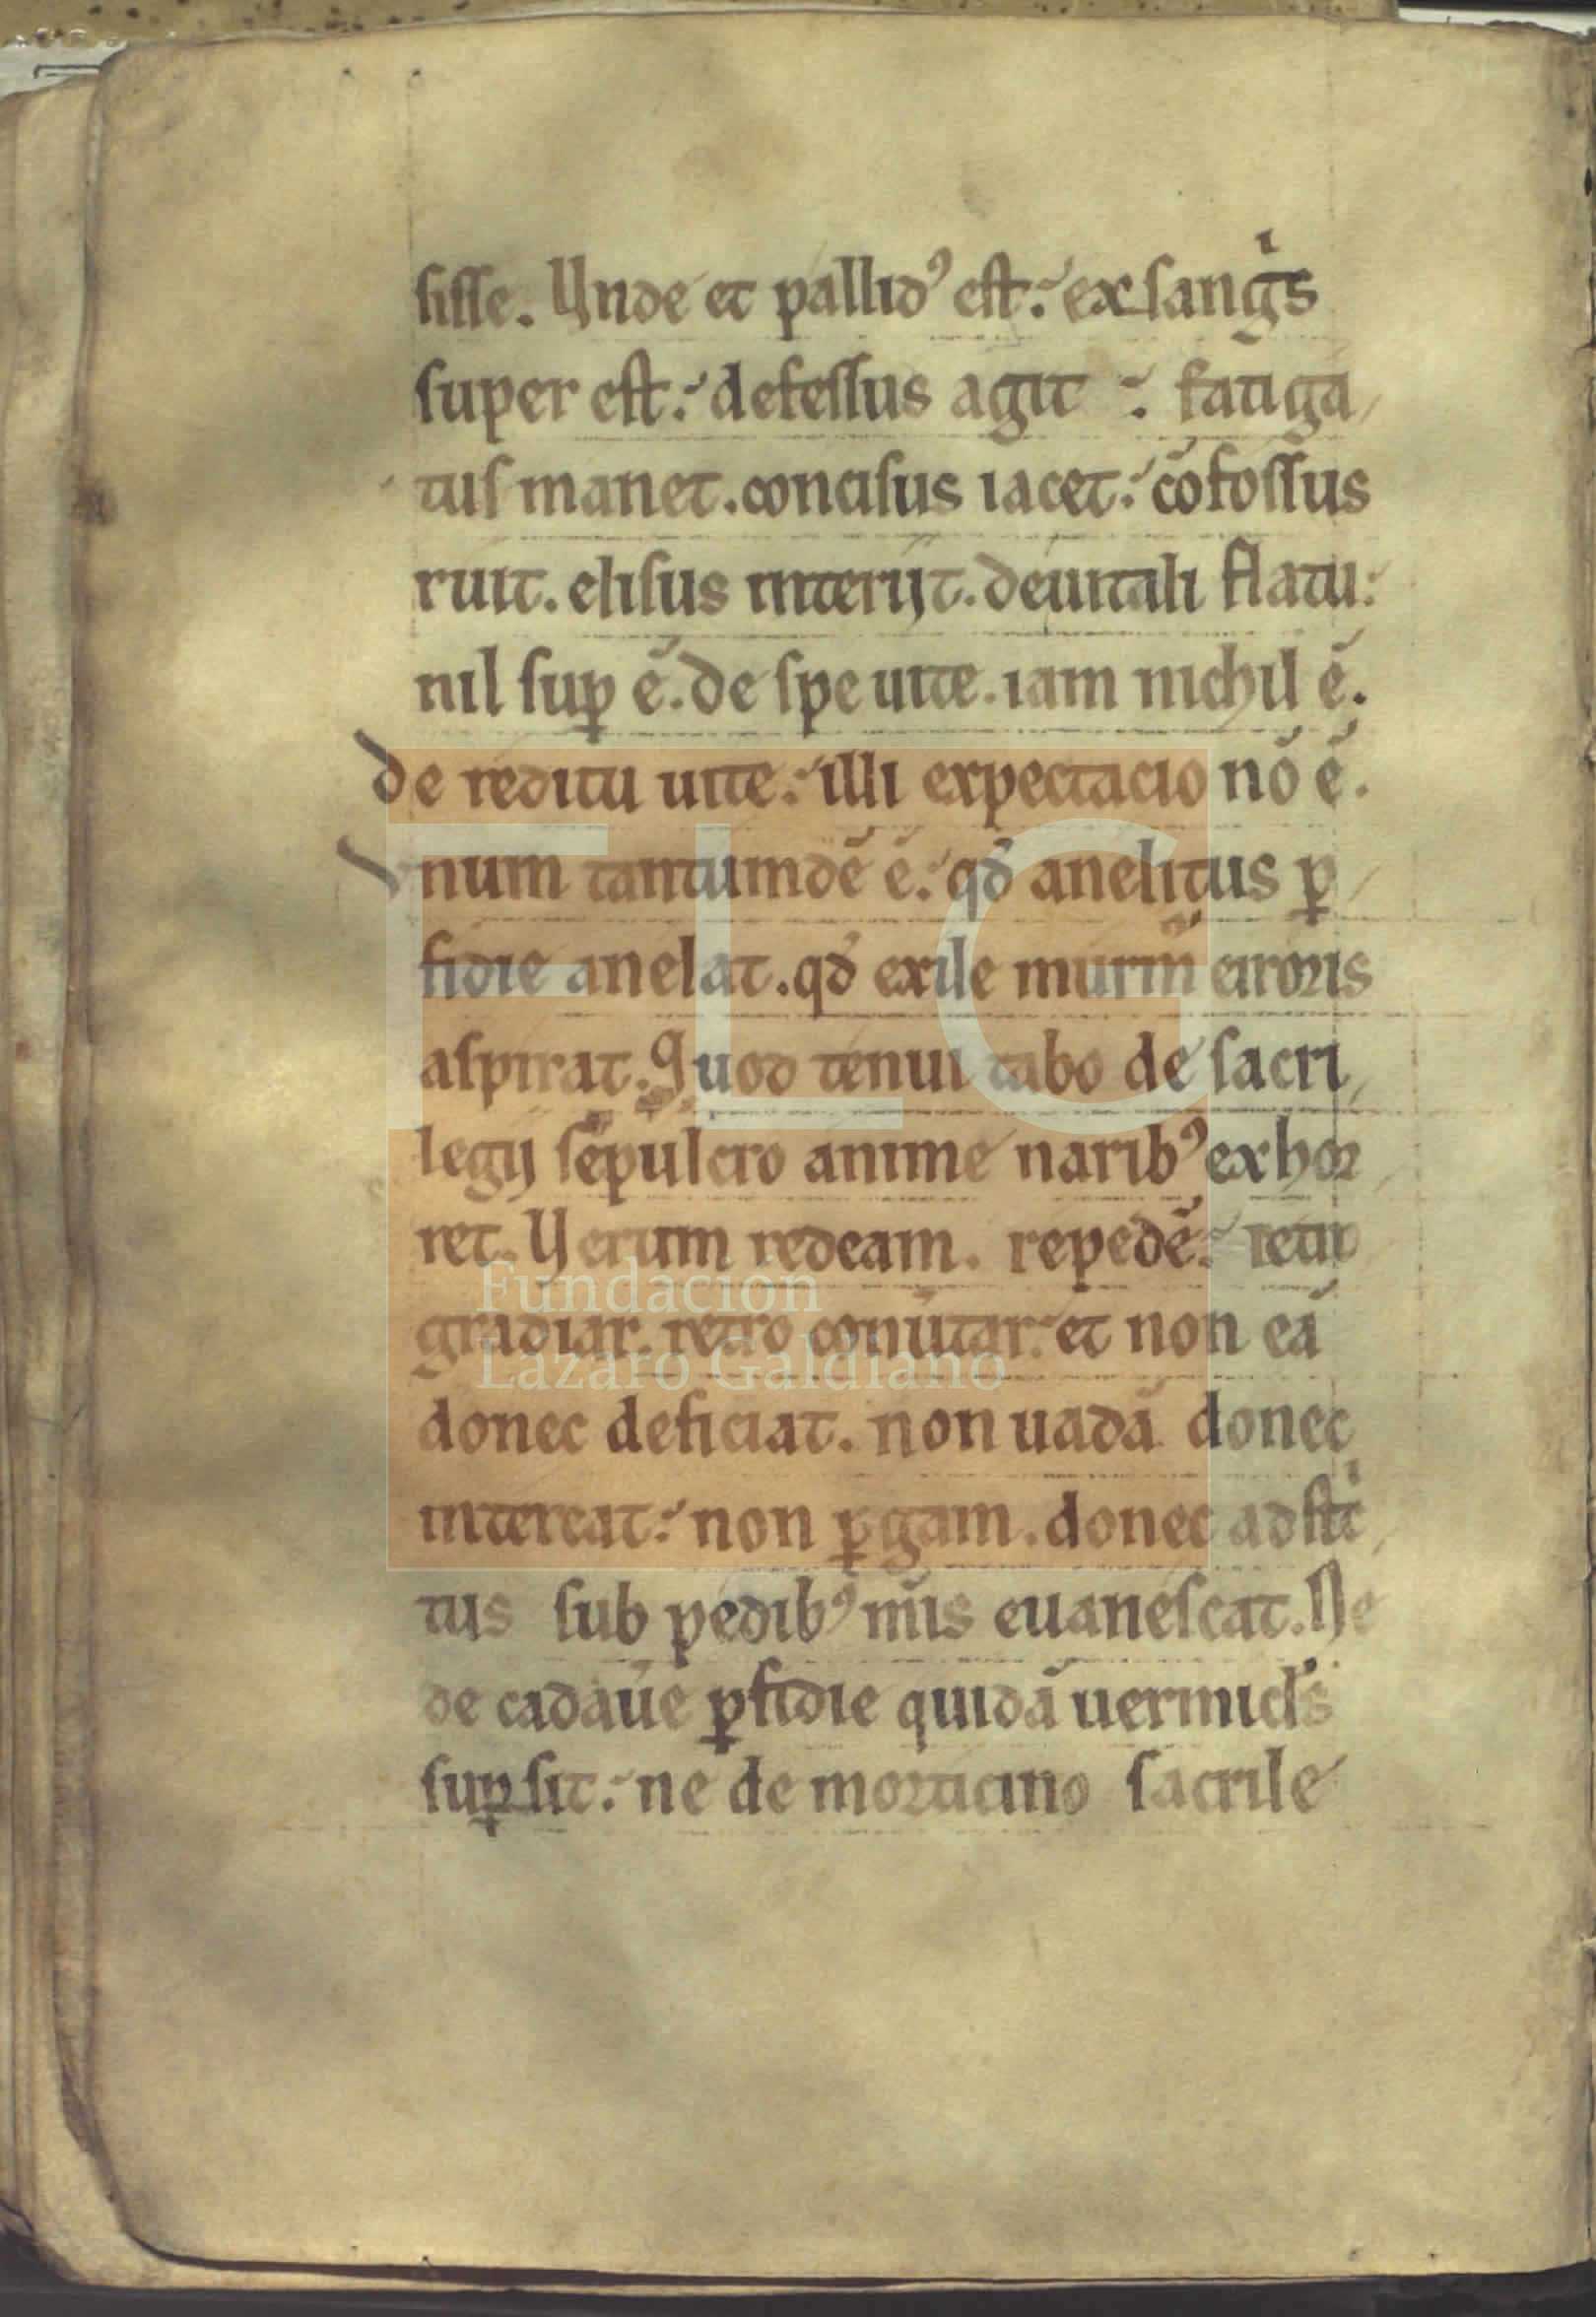 sisse. Unde et pallidꝰ est: exsangͥs
super est: defessus agit : fatiga
tus manet. concisus iacet: cōfossus
ruit. elisus interijt. deuitali flatu:
nil suꝑ ē. de spe uite. iam nichil ē.
de reditu uite: illi expectacio nō ē.
Vnum tantumdē ē: qđ anelitus ꝑ
fidie anelat. qđ exile murm̄ erroris
aspirat. Quod tenui tabo de sacri
legij sepulcro anime naribꝰ exhor
ret. Verum redeam. repedē:
gradiar. retro conūtar: et non eā
donec deficiat. non uadā donec
intereat: non ꝑgam. donec adstͥ
tus sub pedibꝰ nr̄is euanescat. Ne
de cadaūe ꝑfidie quidā uermicl's
suꝑsit: ne de morticino sacrile
Fundación
Lázaro Galdiano
FLG